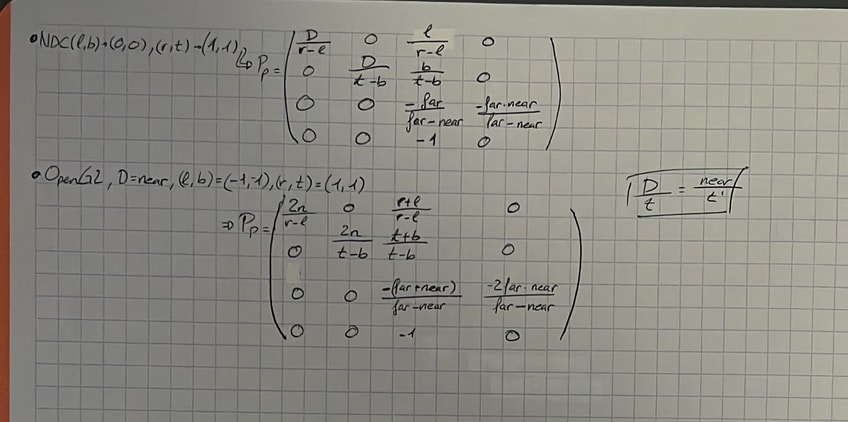 • NDC (l,b)→(0,0), (r,t)→(1,1) ↳ P_p = ( D/(r-l) 0 l/(r-l) 0
0 D/(t-b) b/(t-b) 0
0 0 -far/(far-near) -far·near/(far-near)
0 0 -1 0 )
• OpenGL, D=near, (l,b)=(-1,-1), (r,t)=(1,1)
D/t = near/t'
⇒ P_p = ( 2n/(r-l) 0 (r+l)/(r-l) 0
0 2n/(t-b) (t+b)/(t-b) 0
0 0 -(far+near)/(far-near) -2far·near/(far-near)
0 0 -1 0 )